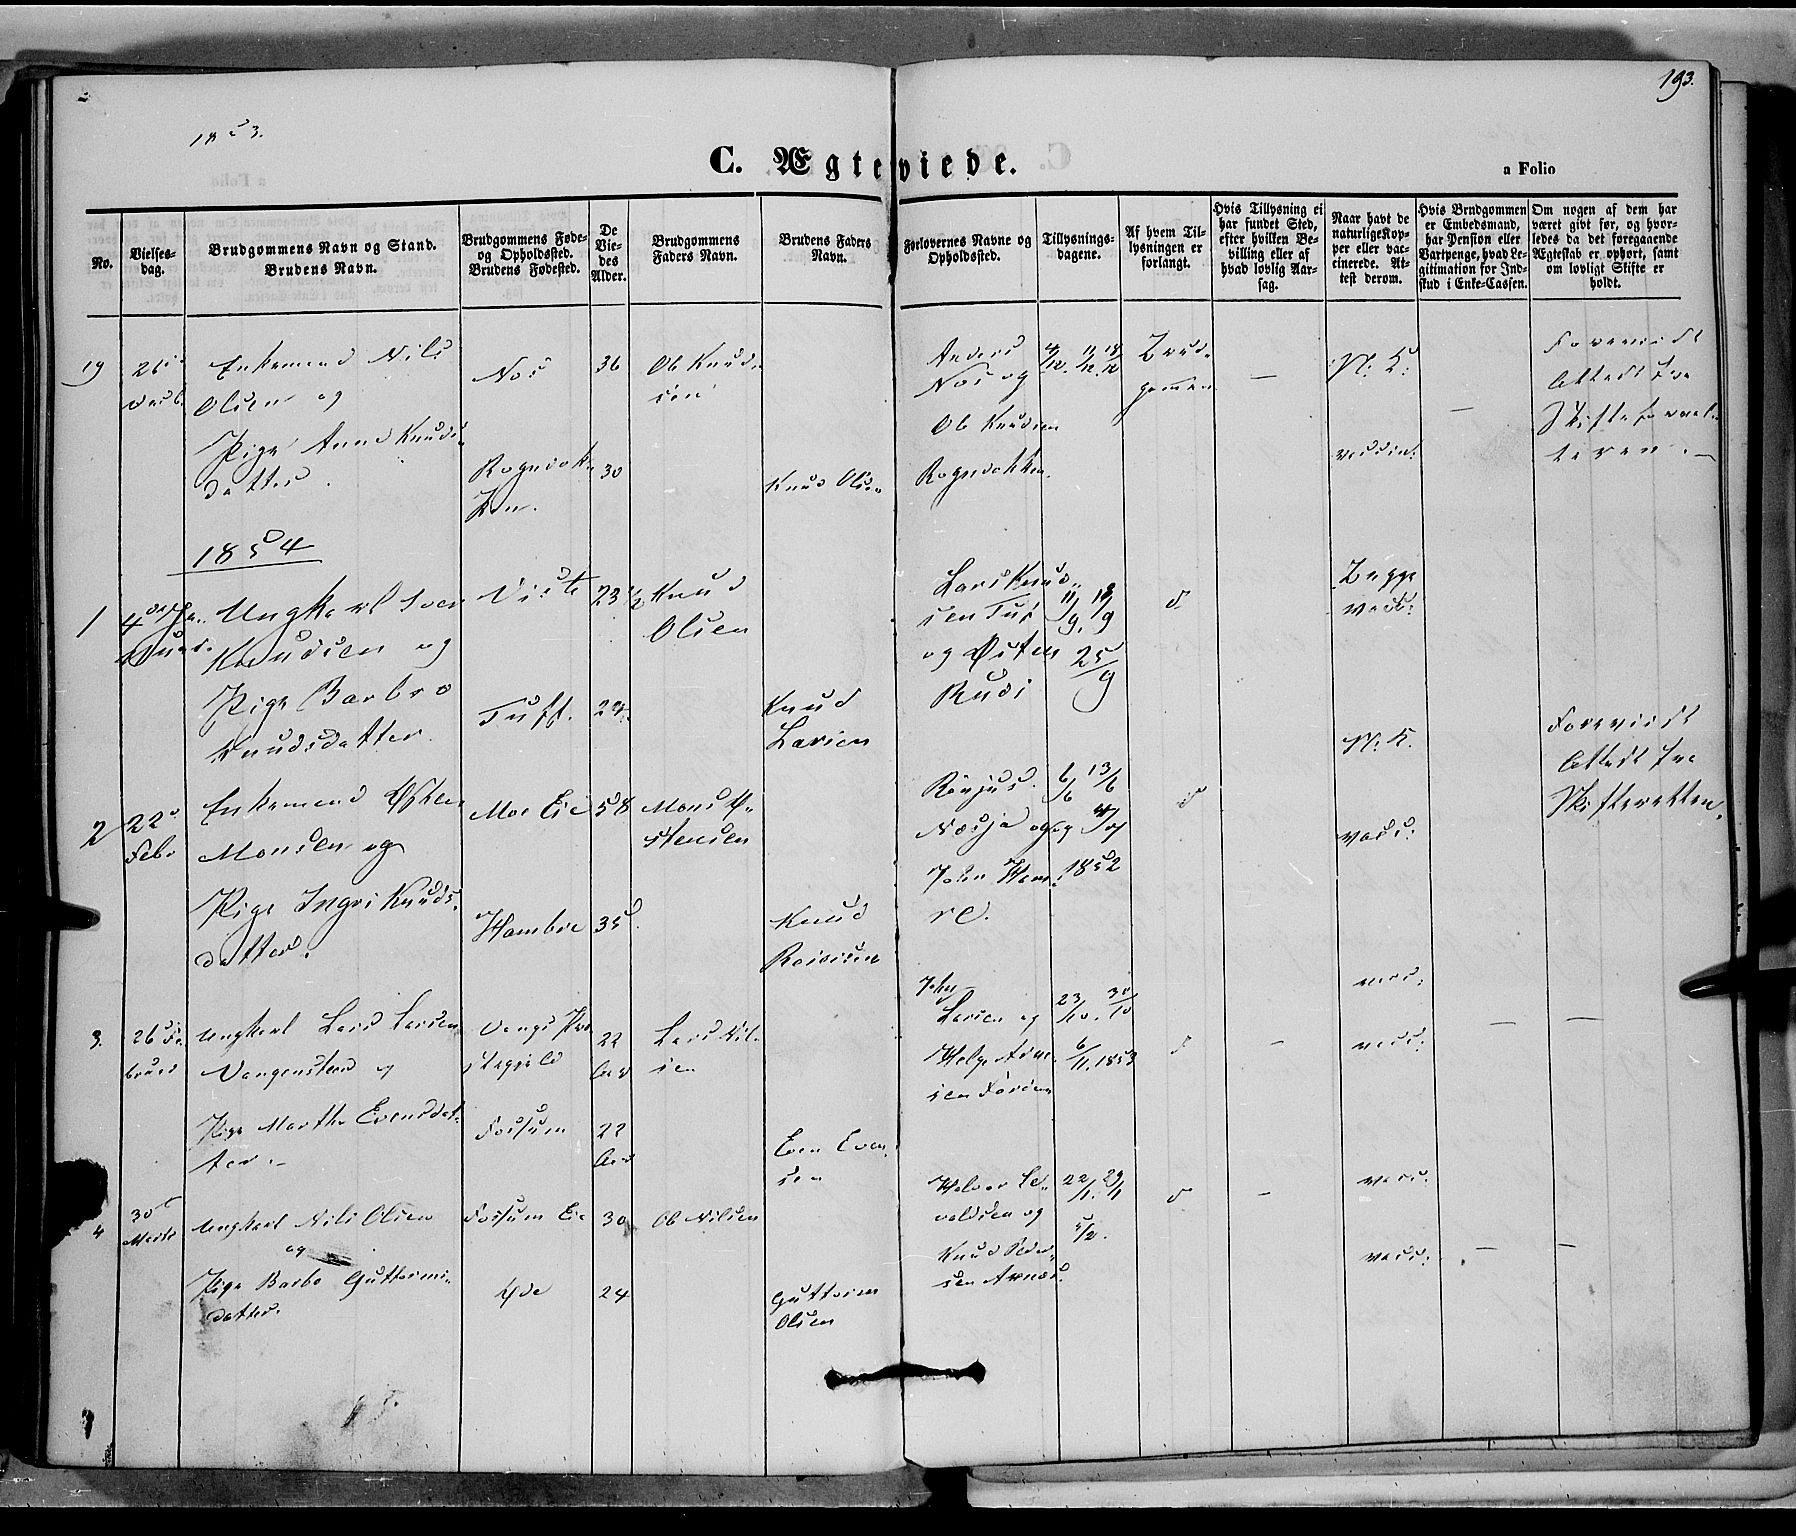 193.
1853.
C. Ægteviede.
a Folio
No.
Vielses-
dag.
Brudgommens Navn og Stand.
Brudens Navn.
Brudgommens Føde-
og Opholdssted.
Brudens Fødested.
De
Vie-
des
Alder.
Brudgommens
Faders Navn.
Brudens Faders
Navn.
Forlovernes Navne og
Opholdssted.
Tillysnings-
dagene.
Af hvem Til-
lysningen er
forlangt.
Hvis Tillysning ei
har fundet Sted,
efter hvilken Be-
villing eller af
hvad lovlig Aar-
sag.
Naar havt de
naturlige Kop-
per eller vac-
cinerede. At-
test derom.
Hvis Brudgommen
er Embedsmand,
har Pension eller
Vartpenge, hvad Le-
gitimation for Ind-
skud i Enke-Cassen.
Om nogen af dem har
været givt før, og hvor-
ledes da det foregaaende
Ægteskab er ophørt, samt
om lovligt Skifte er
holdt.
19
Enkemand Nils
Olsen og
Pige Anne Knuds-
datter.
Nos
36
30
Ole Knud-
sen
Knud Olsen
Anders
Nos og
Ole Knudsen
Rognebakken.
4/12. 11/12. 18/12
Brud-
gommen
—
N: K:
vaccin:
—
Foreviist
Attest fra
Skifteforval-
teren. —
1854
1
Ungkarl Iver
Knudsen og
Pige Barbro
Knudsdatter.
Viste
Tuff.
23 1/2
Knud
Olsen
Knud
Larsen
Lars Knud-
sen Tuf
og Østen
Rudi
11/9. 18/9
25/9
Begge
vacc:
2
22
Febr
Enkemand Østen
Monsen og
Pige Ingri Knuds-
datter.
Moe Eie
58
35
Mons Ø-
stensen
Knud
6/6 13/6
1852
N. K.
vacc:
Foreviist
Attest fra
Skifteretten.
3.
26 Fe-
bruar
Ungkarl Lars Larsen
Vangensteen og
Pige Marthe Evensdat-
ter. -
Vangs Præ-
stegjeld
Fossum
22
Aar
22
Aar
Lars Nil-
sen
Even Even-
sen
John
Larsen og
Helge Arne-
sen
23/10. 30/10
6/11. 1853
—
vacc:
vacc:
— —
4
30
Marts
Ungkarl Nils Olsen
og
Pige Barbo Guttorms-
datter.
Fossum Eie
Yde
30
24
Ole Nilsen
Guttorm
Olsen
Halvor Se-
valdsen og
Knud Peder-
sen
22/1. 29/1
5/2.
—
vacc:
vacc:
— —